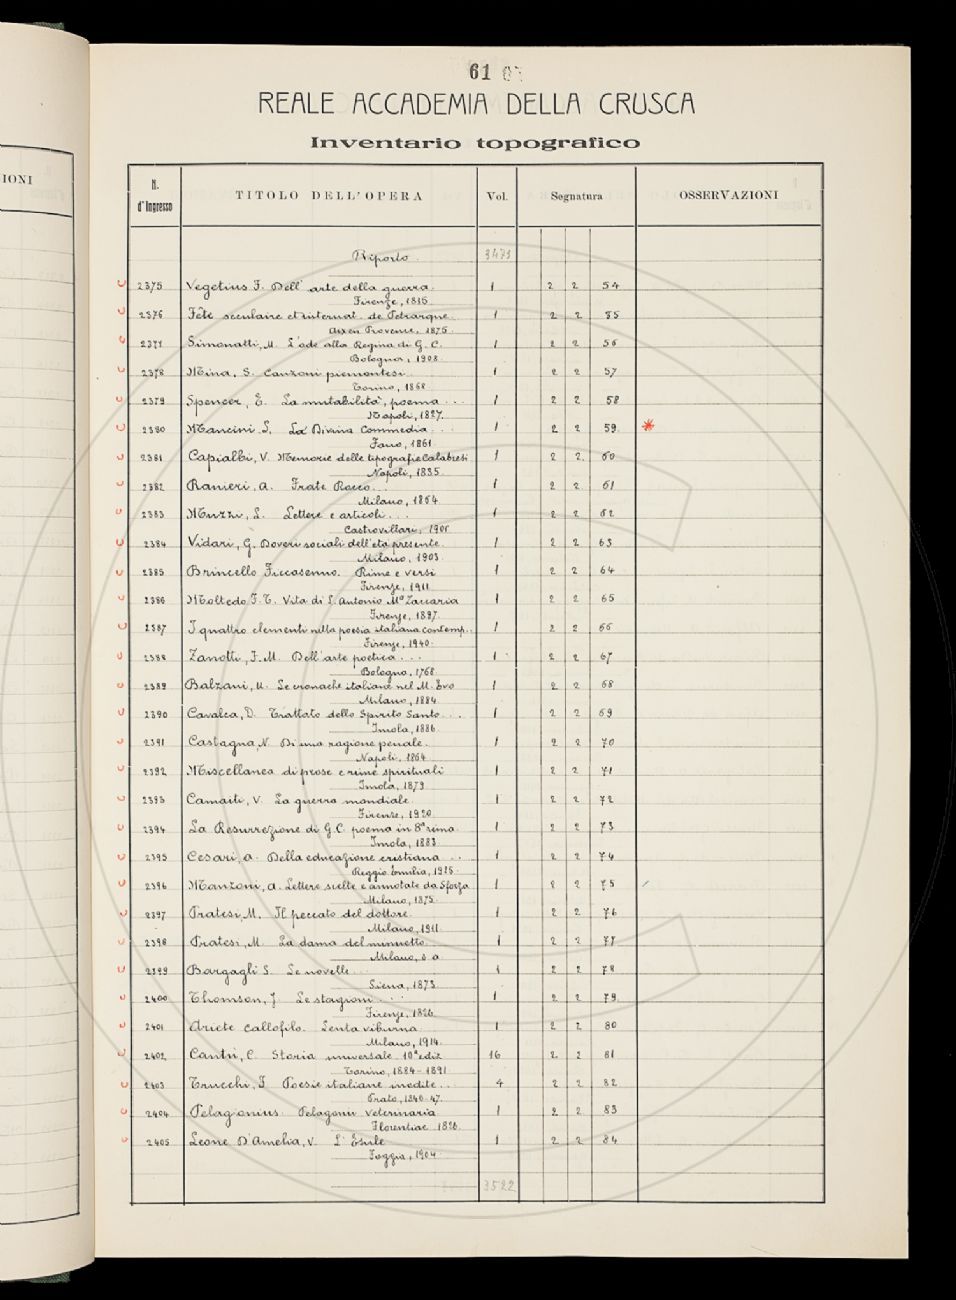 IONI
61
REALE ACCADEMIA DELLA CRUSCA
Inventario topografico
N. d'Ingresso TITOLO DELL'OPERA Vol. Segnatura OSSERVAZIONI
Riporto 3473
2375 Vegetius F. Dell' arte della guerra. 1 2 2 54
Firenze, 1815
2376 Fête seculaire et internat. de Petrarque. 1 2 2 55
Aix en Provence, 1875.
2377 Simonatti, M. L'ode alla Regina di G. C. 1 2 2 56
Bologna, 1908.
2378 Mina, S. Canzoni piemontesi 1 2 2 57
Torino, 1868
2379 Spencer, E. La mutabilità, poema ... 1 2 2 58
Napoli, 1827.
2380 Mancini L. La Divina Commedia ... 1 2 2 59. *
Fano, 1861.
2381 Capialbi, V. Memorie delle tipografie Calabresi 1 2 2. 60
Napoli, 1835.
2382 Ranieri, A. Frate Rocco ... 1 2 2 61
Milano, 1864
2383 Muzzi, L. Lettere e articoli ... 1 2 2 62
Castrovillari,
2384 Vidari, G. Doveri sociali dell'età presente. 1 2 2 63
Milano, 1903.
2385 Brincello Ficcasenno. Rime e versi 1 2 2 64
Firenze, 1911
2386 Moltedo F. T. Vita di S. Antonio Mª Zaccaria 1 2 2 65
Firenze, 1897.
2387 I quattro elementi nella poesia italiana contemp.. 1 2 2 66
Firenze, 1940.
2388 Zanotti, F. M. Dell'arte poetica ... 1 2 2 67
Bologna, 1768
2389 Balzani, U. Le cronache italiane nel M. Evo 1 2 2 68
Milano, 1884.
2390 Cavalca, D. Trattato dello Spirito Santo ... 1 2 2 69
Imola, 1886.
2391 Castagna, N. Di una ragione penale. 1 2 2 70
Napoli, 1864
2392 Miscellanea di prose e rime spirituali 1 2 2 71
Imola, 1879.
2393 Camaiti, V. La guerra mondiale. 1 2 2 72
Firenze, 1920.
2394 La Resurrezione di G. C. poema in 8ª rima. 1 2 2 73
Imola, 1883
2395 Cesari, A. Della educazione cristiana .. 1 2 2 74
Reggio Emilia, 1925.
2396 Manzoni, A. Lettere scelte e annotate da Sforza 1 2 2 75
Milano, 1875.
2397 Pratesi, M. Il peccato del dottore. 1 2 2 76
Milano, 1911.
2398 Pratesi, M. La dama del minuetto. 1 2 2 77
Milano, s. a.
2399 Bargagli S. Le novelle ... 1 2 2 78
Siena, 1873.
2400 Thomson, J. Le stagioni ... 1 2 2 79.
Firenze, 1826.
2401 Ariete Callofilo. Lenta viburna. 1 2 2 80
Milano, 1914.
2402 Cantù, C. Storia universale. 10ª ediz. 16 2 2 81
Torino, 1884-1891.
2403 Trucchi, F. Poesie italiane inedite ... 4 2 2 82
Prato, 1846-47.
2404 Pelagonius. Pelagonii Veterinaria 1 2 2 83
Florentiae 1826.
2405 Leone D'Amelia, V. L'Esule 1 2 2 84
Foggia, 1904.
3522